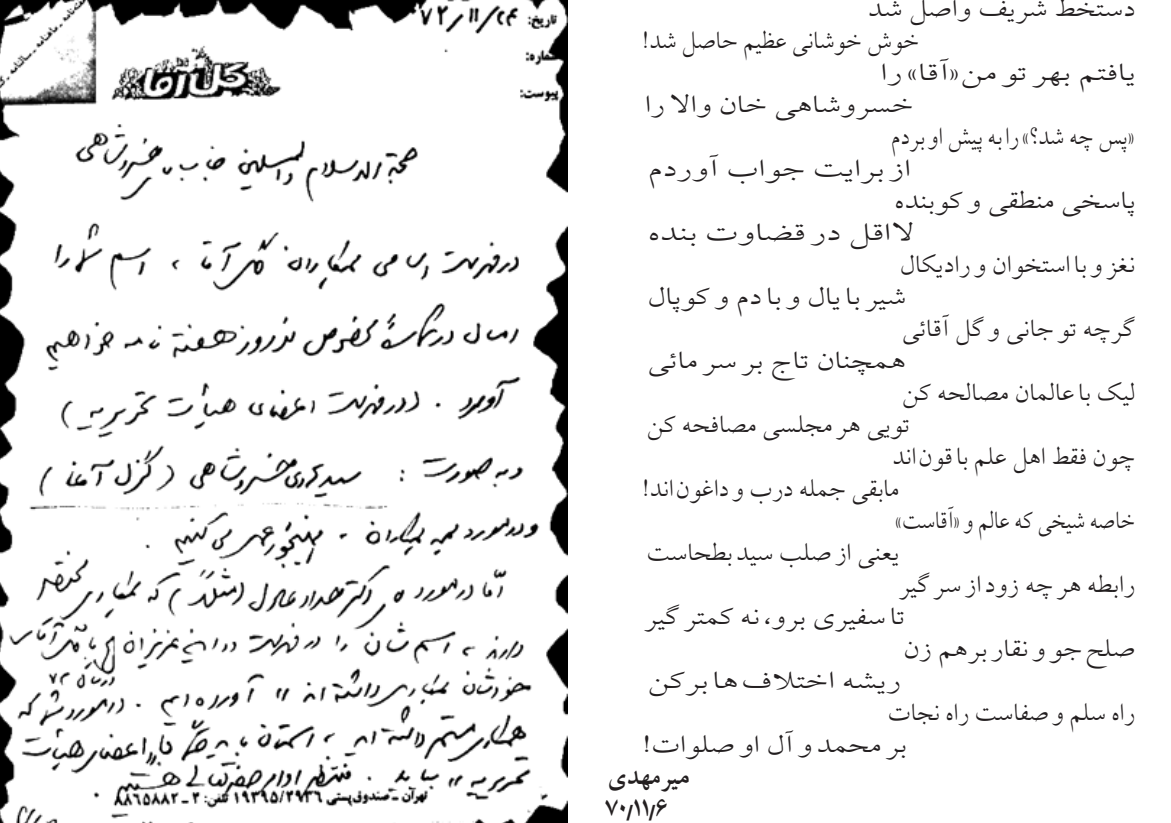 تاریخ: ۷۲/۱۱/۲۴
شماره:
پیوست:
گل آقا
حجة الاسلام والمسلمین جناب آقای خسروشاهی
در فهرست اسامی همکاران گل آقا ، اسم شما را
امسال در شمارهٔ مخصوص نوروز هفته نامه خواهیم
آورد . (در فهرست اعضای هیأت تحریریه)
و به صورت : سید هادی خسروشاهی (گزل آغا)
و در مورد همه همکاران ، اینجور عمل می کنیم .
اما در مورد دکتر حداد عادل (مثلاً) که همکاری مختصر
دارند ، اسم شان را در فهرست « این عزیزان هم با گل آقای
خودشان همکاری داشته اند » آورده ایم . در مورد شما که
در سال ۷۲
همکاری مستمر داشته اید ، اسمتان باید جزو اعضای هیأت
تحریریه بیاید . منتظر اوامر حضرتعالی هستیم .
تهران ـ صندوق پستی ۱۹۳۹۵/۴۹۳۶ تلفن: ۲ ـ ۸۸۶۵۸۸۲
دستخط شریف واصل شد
خوش خوشانی عظیم حاصل شد!
یافتم بهر تو من «آقا» را
خسروشاهی خان والا را
«پس چه شد؟» را به پیش او بردم
از برایت جواب آوردم
پاسخی منطقی و کوبنده
لااقل در قضاوت بنده
نغز و با استخوان و رادیکال
شیر با یال و با دم و کوپال
گرچه تو جانی و گل آقائی
همچنان تاج بر سر مائی
لیک با عالمان مصالحه کن
تویی هر مجلسی مصافحه کن
چون فقط اهل علم باقون‌اند
مابقی جمله درب و داغون‌اند!
خاصه شیخی که عالم و «آقاست»
یعنی از صلب سید بطحاست
رابطه هر چه زود از سر گیر
تا سفیری برو، نه کمتر گیر
صلح جو و نقار برهم زن
ریشه اختلاف ها برکن
راه سلم و صفاست راه نجات
بر محمد و آل او صلوات!
میرمهدی
۷۰/۱۱/۶